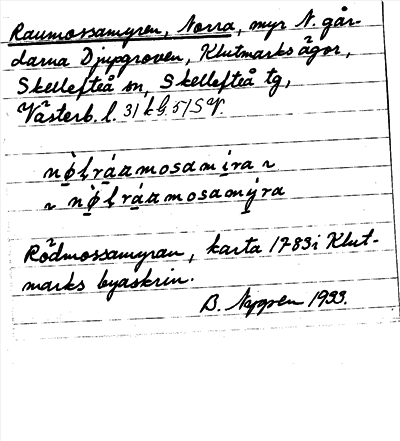 Raumossamyren, Norra, myr N. går-
darna Djupgroven, Klutmarks ägor,
Skellefteå sn, Skellefteå tg,
Västerb. l. 31 k G. 5/SV.
nø̀lráamosamira ~
~ nø̀lráamosamýra
Rödmossamyran, karta 1783 i Klut-
marks byaskrin.
B. Nygren 1933.